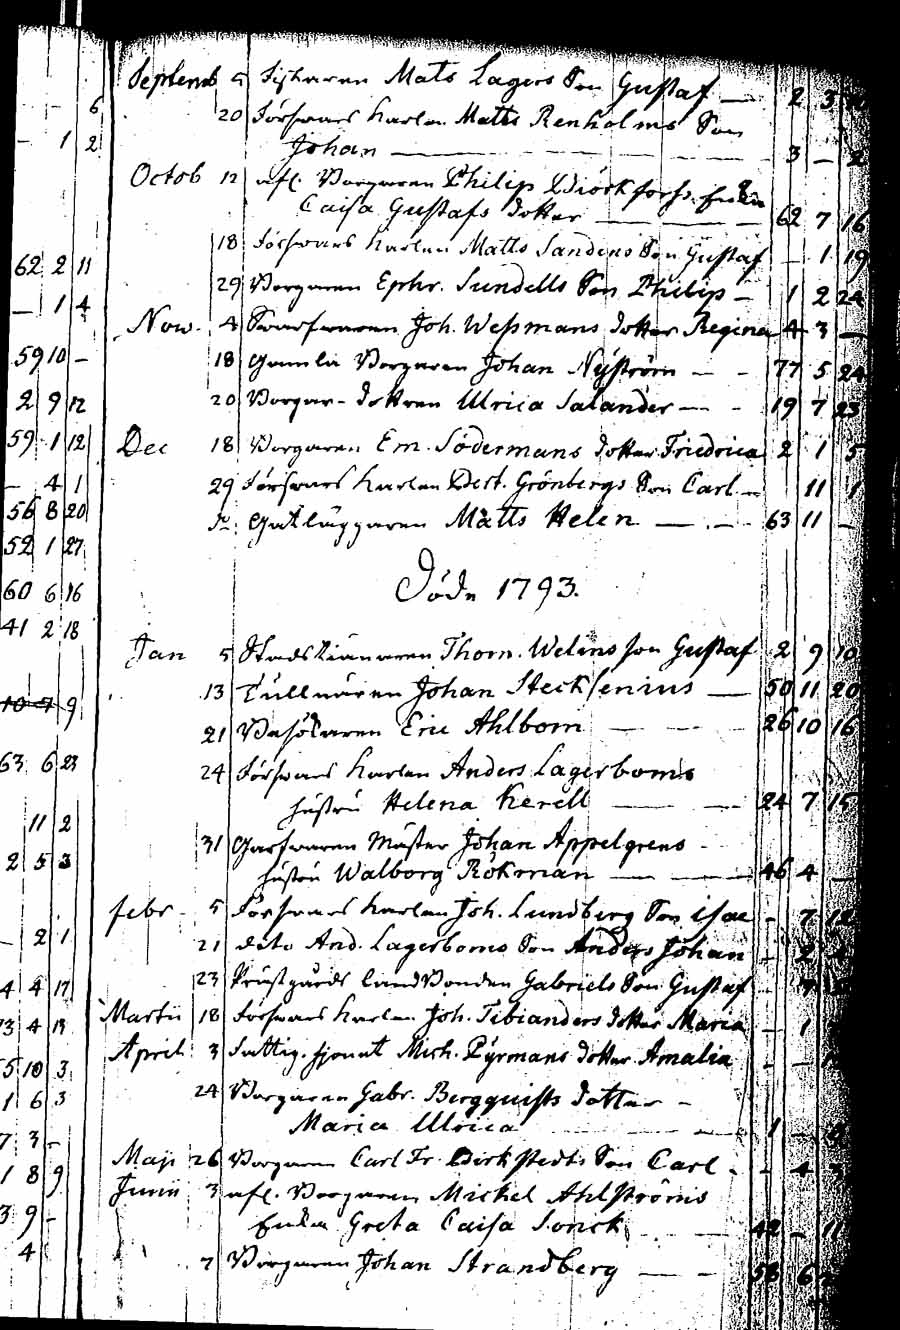 Septemb 5 Fiskaren Mats Lagers Son Gustaf — 2 3
20 Förswars Karlen Matts Renholms Son
Johan — 3 — 2
Octob 12 afl. Borgaren Philip Biörkforss. Enka
Caisa Gustafs dotter — 62 7 16
18 Förswars Karlen Matts Sandens Son Gustaf — 1 19
29 Borgaren Ephr. Sundells Son Philip — 1 2 24
Now. 4 Swarfwaren Joh. Wessmans dotter Regina 4 3 —
18 Gamla Borgaren Johan Nyström — 77 5 24
20 Borgar-dottren Ulrica Salander — 19 7 23
Dec 18 Borgaren Em. Södermans dotter Friedrica 2 1 5
29 Förswars Karlen Bert. Grönbergs Son Carl — 11 1
Gatläggaren Matts Helen — 63 11 —
Döde 1793.
Jan 5 Stads Tienaren Thom. Welins son Gustaf 2 9 10
13 Tullnären Johan Steckfenius — 50 11 20
21 Besökaren Eric Ahlbom — 26 10 16
24 Förswars Karlen Anders Lagerboms
hustru Helena Kerell — 24 7 15
31 Garfwaren Mäster Johan Appelgrens
hustru Walborg Rökman — 46 4 —
febr 5 Förswars Karlen Joh. Lundberg Son isac - 7 12
21 dito And. Lagerboms Son Anders Johan - 2
23 Prästgårds Landbonden Gabriels Son Gustaf
Martii 18 Förswars Karlen Joh. Tibianders dotter Maria - 1
April 3 Fattig. hjonet Mich. Pyrmans dotter Amalia - -
24 Borgaren Gabr. Bergquists dotter -
Maria Ulrica 1 —
Maji 26 Borgaren Carl Fr. Birkstedts Son Carl - - 4
Junii 3 afl. Borgaren Mickel Ahlströms
Enka Greta Caisa Sonck 42 — 11
7 Borgaren Johan Strandberg — 58 6
6
— 1 2
62 2 11
— 1 4
59 10 -
2 9 12
59 1 12
— 4 1
56 8 20
52 1 27
60 6 16
41 2 18
9
63 6 23
11 2
2 5 3
— 2 1
4 4 17
4 13
5 10 3
1 6 3
7 3 -
1 8 9
3 9 -
4